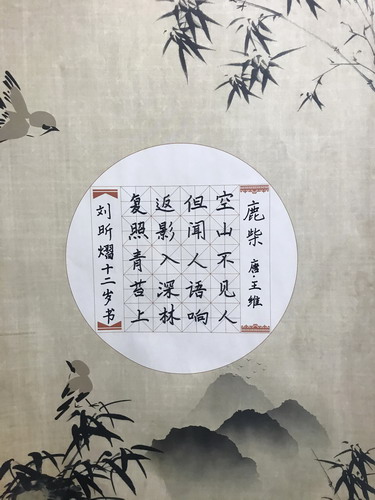 鹿柴 唐·王维
空山不见人
但闻人语响
返影入深林
复照青苔上
刘昕熠十二岁书